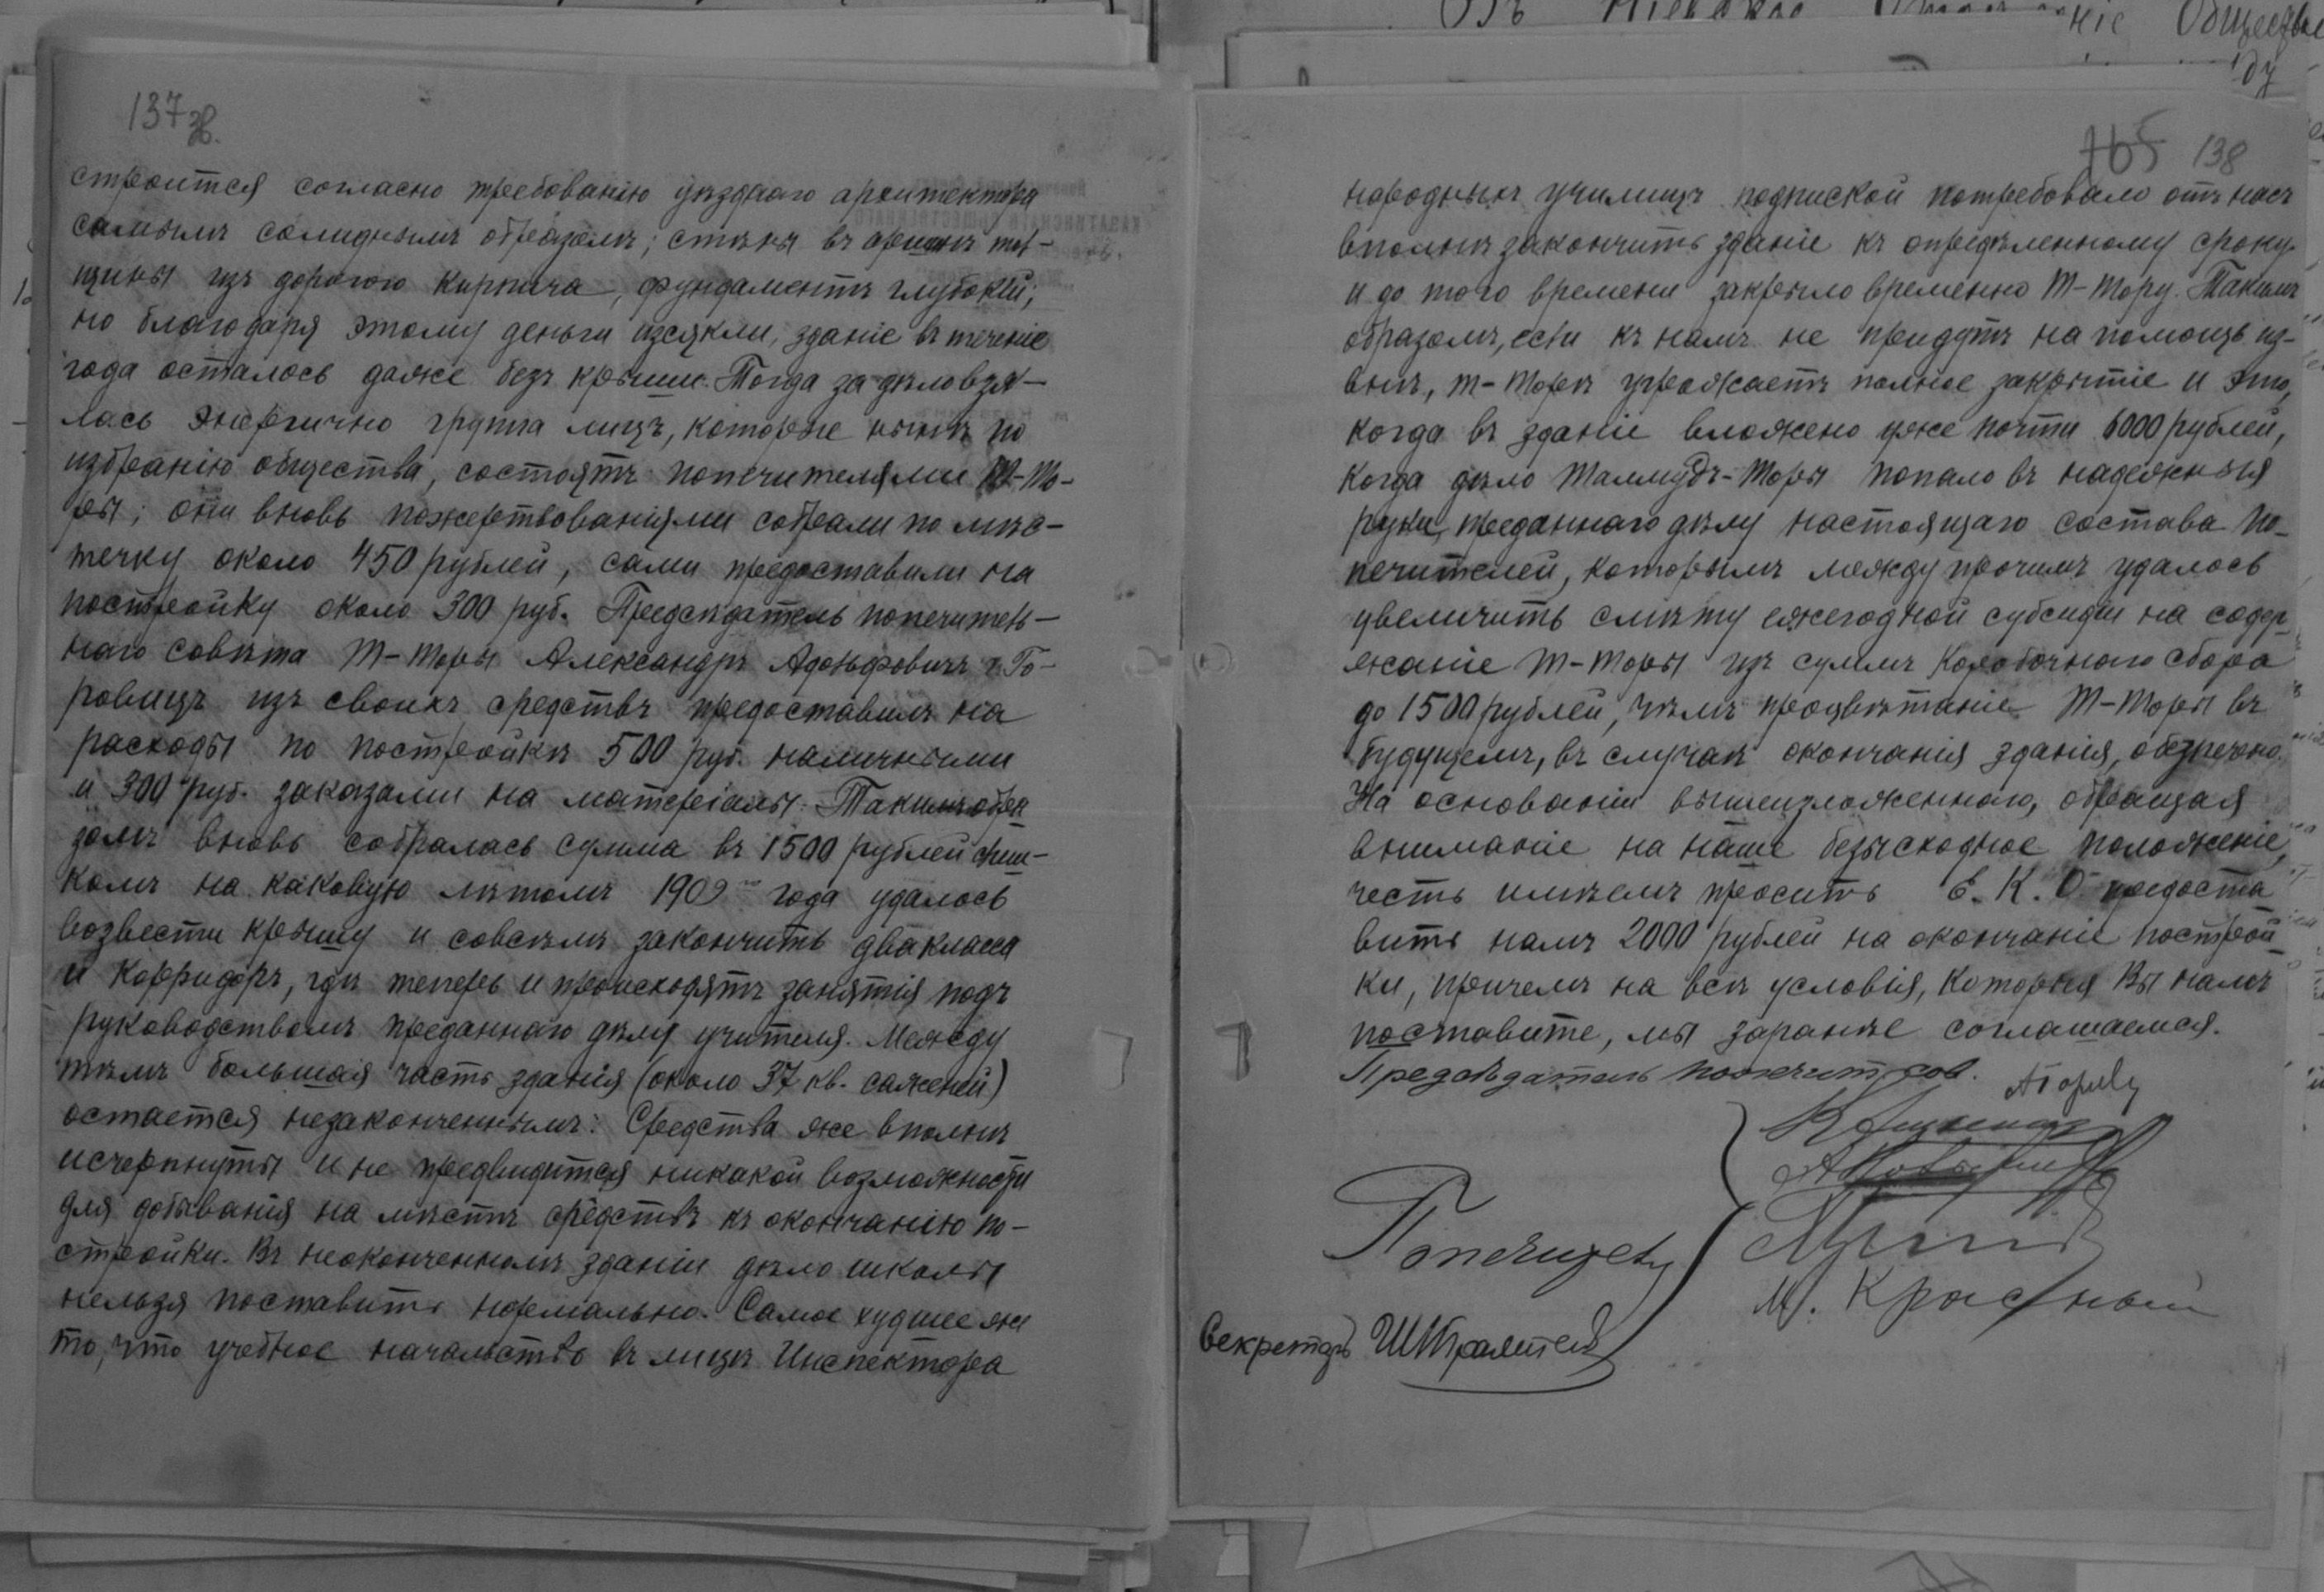 137 зв.
строится согласно требованію уѣзднаго архитектора
самымъ солиднымъ образомъ; стѣны въ аршинъ тол-
щины изъ дорогого кирпича, фундаментъ глубокій;
но благодаря этому деньги изсякли, зданіе въ теченіе
года осталось даже безъ крыши. Тогда за дѣло взя-
лась энергично группа лицъ, которые нынѣ по
избранію общества, состоятъ попечителями Т-То-
ры; они вновь пожертвованіями собрали по мѣс-
течку около 450 рублей, сами предоставили на
постройку около 300 руб. Предсѣдатель попечитель-
наго совѣта Т-Торы Александръ Адольфовичъ г. Го-
ровицъ изъ своихъ средствъ предоставилъ на
расходы по постройкѣ 500 руб. наличными
и 300 руб. заказами на матеріалы. Такимъ обра
зомъ вновь собралась сумма въ 1500 рублей
комъ на каковую лѣтомъ 1909 го года удалось
возвести крышу и совсѣмъ закончить два класса
и корридоръ, гдѣ теперь и происходятъ занятія подъ
руководствомъ преданнаго дѣлу учителя. Между
тѣмъ большая часть зданія (около 37 кв. саженей)
остается незаконченнымъ: Средства же вполнѣ
исчерпнуты и не предвидится никакой возможности
для добыванія на мѣстѣ средствъ къ окончанію по-
стройки. Въ неоконченномъ зданіи дѣло школы
нельзя поставить нормально. Самое худшее же
то, что учебное начальство въ лицѣ Инспектора
165 138
народныхъ училищъ подпиской потребовало отъ насъ
вполнѣ закончить зданіе къ опредѣленному сроку
и до того времени закрыло временно Т-Тору. Такимъ
образомъ, если къ намъ не придутъ на помощь из-
внѣ, Т-Торѣ угрожаетъ полное закрытіе и это,
когда въ зданіе вложено уже почти 6000 рублей,
когда дѣло Талмудъ-Торы попало въ надежныя
руки, преданнаго дѣлу настоящаго состава По-
печителей, которымъ между прочимъ удалось
увеличить смѣту ежегодной субсидіи на содер-
жаніе Т-Торы изъ суммъ Коробочнаго сбора
до 1500 рублей, чѣмъ процвѣтаніе Т-Торы въ
будущемъ, въ случаѣ окончанія зданія, обезпечено.
На основаніи вышеизложеннаго, обращая
вниманіе на наше безысходное положеніе,
честь имѣемъ просить Е. К. О. предоста
вить намъ 2000 рублей на окончаніе построй
ки, причемъ на всѣ условія, которыя Вы намъ
поставите, мы заранѣе соглашаемся.
Предсѣдатель попечит. сов.
Попечители
М. Красный
Секретарь